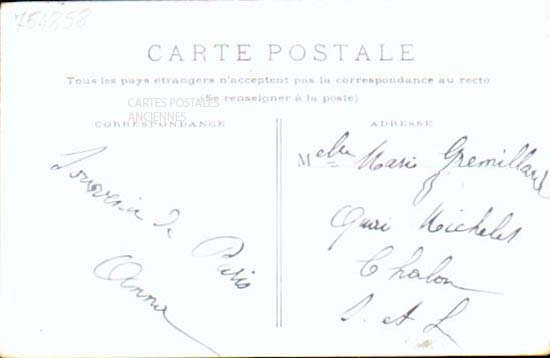 754858
CARTE POSTALE
Tous les pays étrangers n'acceptent pas la correspondance au recto
(Se renseigner à la poste)
CARTES POSTALES
ANCIENNES
CORRESPONDANCE
Souvenir de
Paris
Anna
ADRESSE
Melle Marie Gremillard
Quai Michelet
Chalon
S. et L